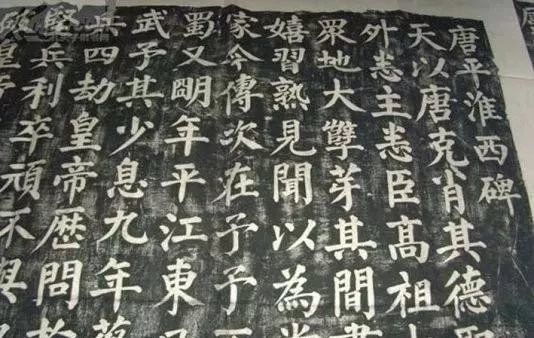 唐平淮西碑
天以唐克肖其德聖
外悉主悉臣高祖
眾地大孽芽其間肅
嬉習熟見聞以為
家今傳次在予予不
蜀又明年平江東又
武予其少息九年蔡
兵四劫皇帝歷問於
堅兵利卒頑不與
破皇帝